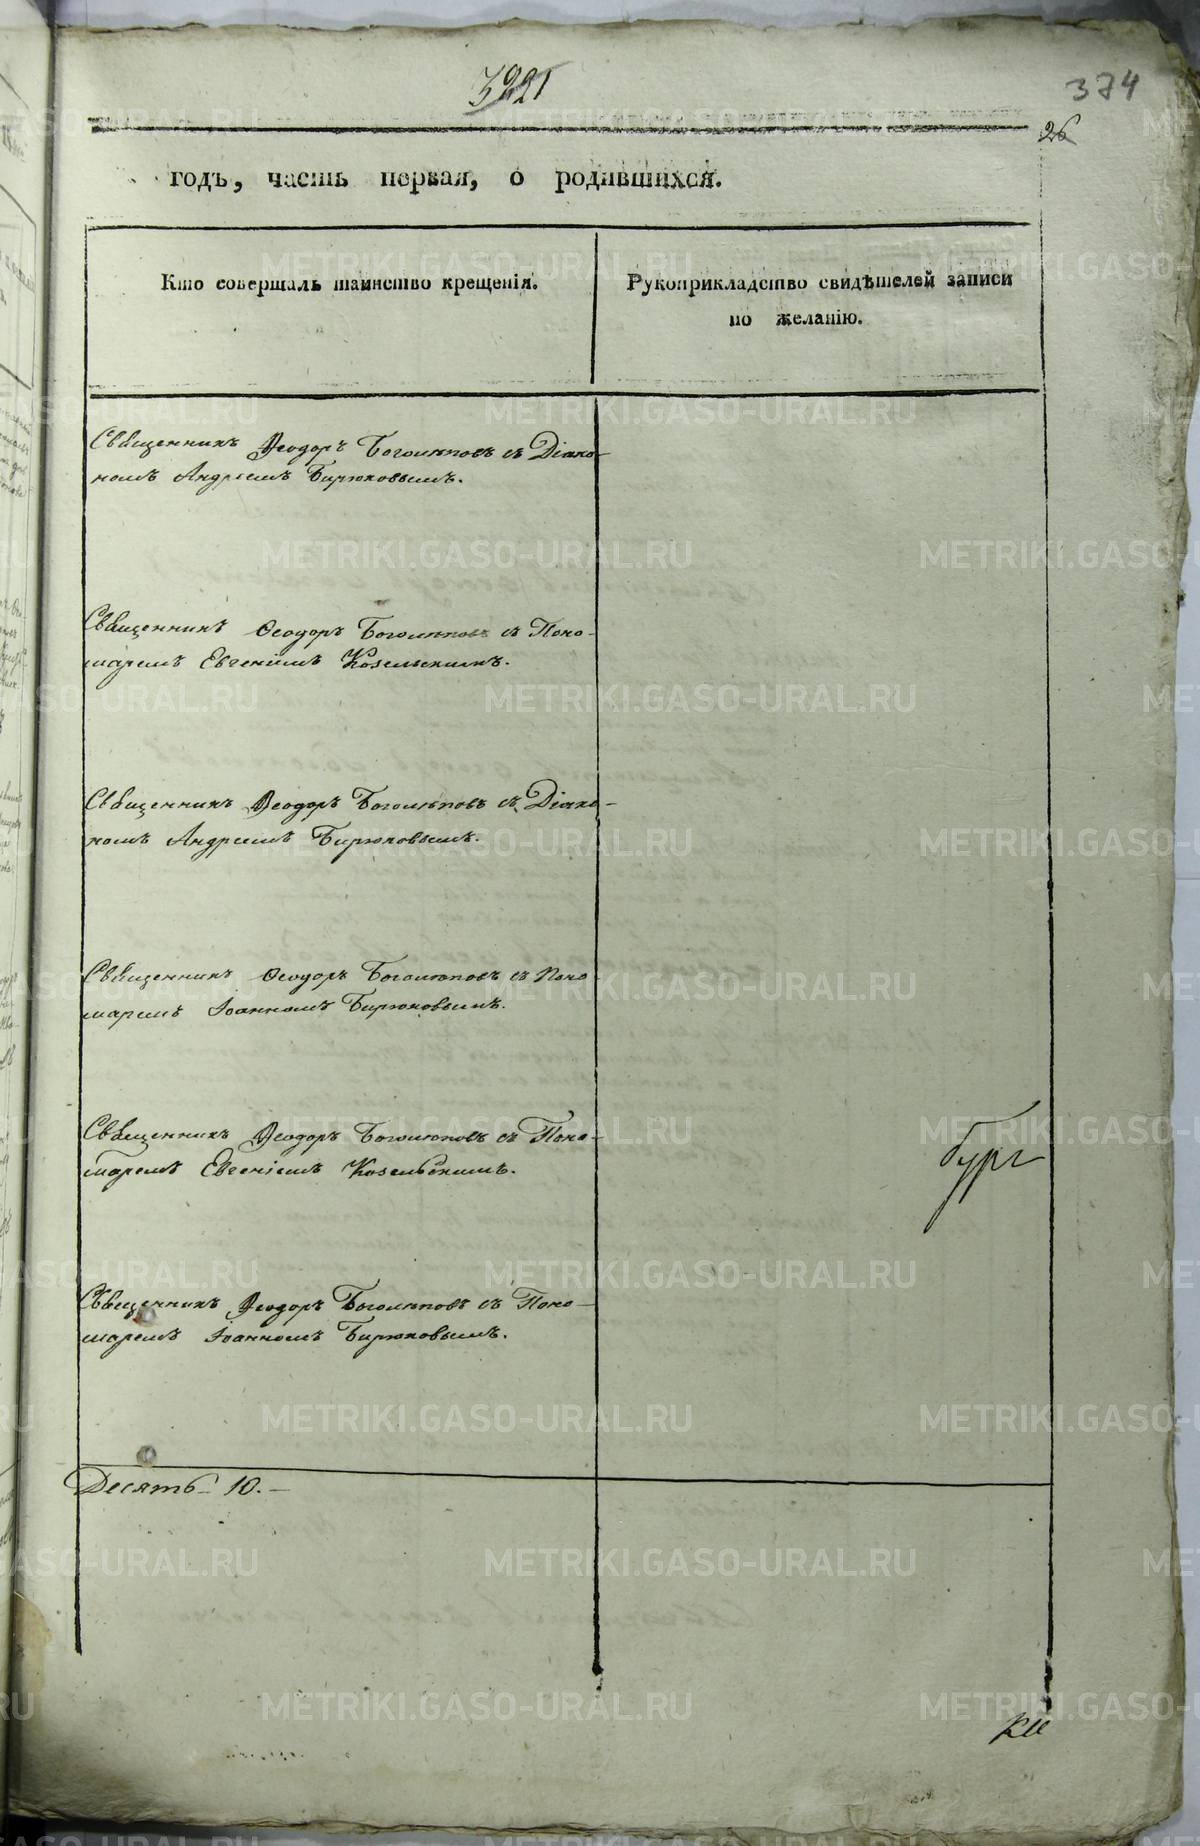 3221
374
26
годъ, часть первая, о родившихся.
Кто совершалъ таинство крещенія.
Рукоприкладство свидѣтелей записи
по желанію.
Священникъ Ѳеодоръ Боголѣповъ съ Діако-
номъ Андреемъ Бирюковымъ.
Священникъ Ѳеодоръ Боголѣповъ съ Поно-
маремъ Евгеніемъ Козельскимъ.
Священникъ Ѳеодоръ Боголѣповъ съ Діако-
номъ Андреемъ Бирюковымъ.
Священникъ Ѳеодоръ Боголѣповъ съ Поно-
маремъ Іоанномъ Бирюковымъ.
Священникъ Ѳеодоръ Боголѣповъ съ Поно-
маремъ Евгеніемъ Козельскимъ.
бург
Священникъ Ѳеодоръ Боголѣповъ съ Поно-
маремъ Іоанномъ Бирюковымъ.
Десять 10.
METRIKI.GASO-URAL.RU